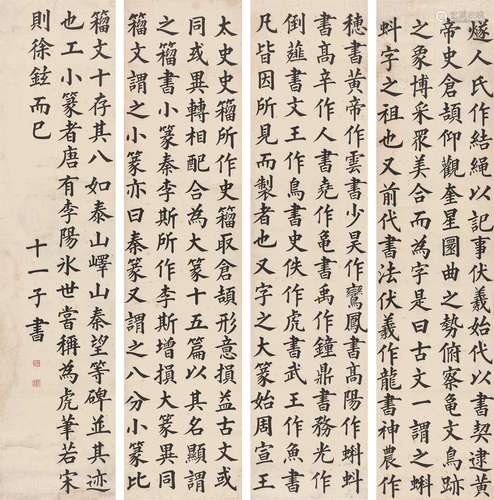 燧人氏作結繩以記事伏羲始代以書契逮黃
帝史倉頡仰觀奎星圜曲之勢俯察龜文鳥跡
之象博采眾美合而為字是曰古文一謂之蝌
蚪字之祖也又前代書法伏羲作龍書神農作
穗書黃帝作雲書少昊作鸞鳳書高陽作蝌蚪
書高辛作人書堯作龜書禹作鐘鼎書務光作
倒薤書文王作鳥書史佚作虎書武王作魚書
凡皆因所見而製者也又字之大篆始周宣王
太史史籀所作史籀取倉頡形意損益古文或
同或異轉相配合為大篆十五篇以其名顯謂
之籀書小篆秦李斯所作李斯增損大篆異同
籀文謂之小篆亦曰秦篆又謂之八分小篆比
籀文十存其八如泰山嶧山秦望等碑並其迹
也工小篆者唐有李陽冰世嘗稱為虎筆若宋
則徐鉉而已
十一子書